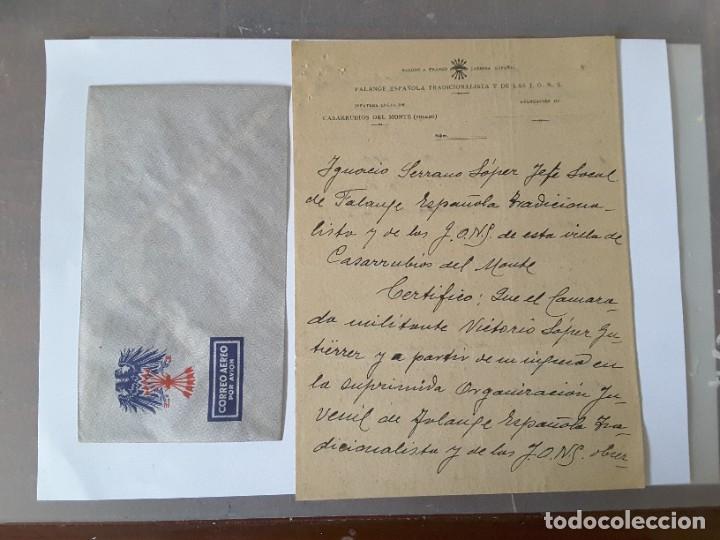 SALUDO A FRANCO ¡ARRIBA ESPAÑA!
FALANGE ESPAÑOLA TRADICIONALISTA Y DE LAS J. O. N. S.
JEFATURA LOCAL DE
DELEGACIÓN DE
CASARRUBIOS DEL MONTE (TOLEDO)
Núm.
Ignacio Serrano López Jefe Local
de Falange Española Tradiciona-
lista y de las J.O.N.S. de esta villa de
Casarrubios del Monte
Certifico: Que el Camara-
da militante Victorio López Gu-
tiérrez y a partir de su ingreso en
la suprimida Organización Ju-
venil de Falange Española Tra-
dicionalista y de las J.O.N.S. obser-
CORREO AEREO
POR AVION
todocoleccion.net